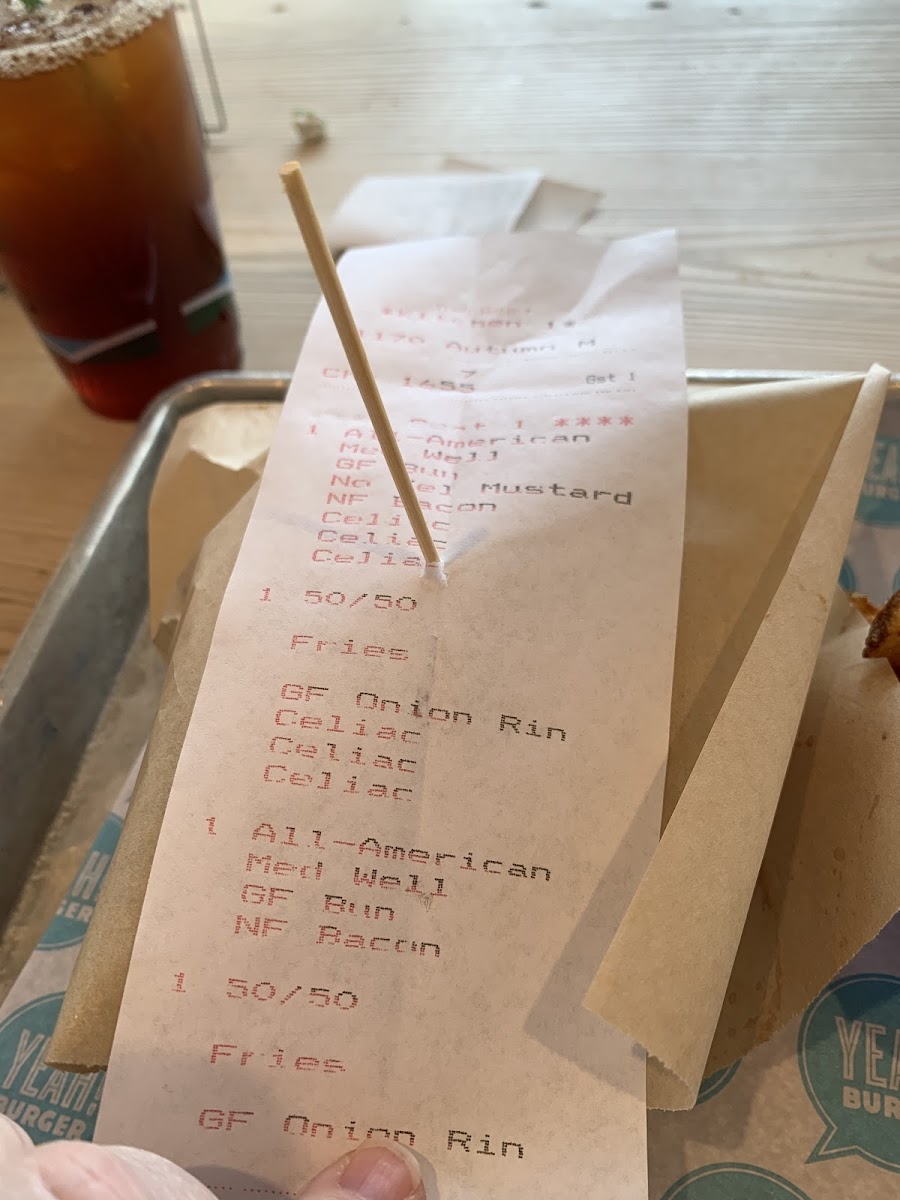 1170 Autumn M
7
1455 Gst 1
1 ****
1 All-American
Med Well
GF Bun
No Mustard
NF Bacon
Celiac
Celiac
Celiac
1 50/50
Fries
GF Onion Rin
Celiac
Celiac
Celiac
1 All-American
Med Well
GF Bun
NF Bacon
1 50/50
Fries
GF Onion Rin
YEAH!
BURGER